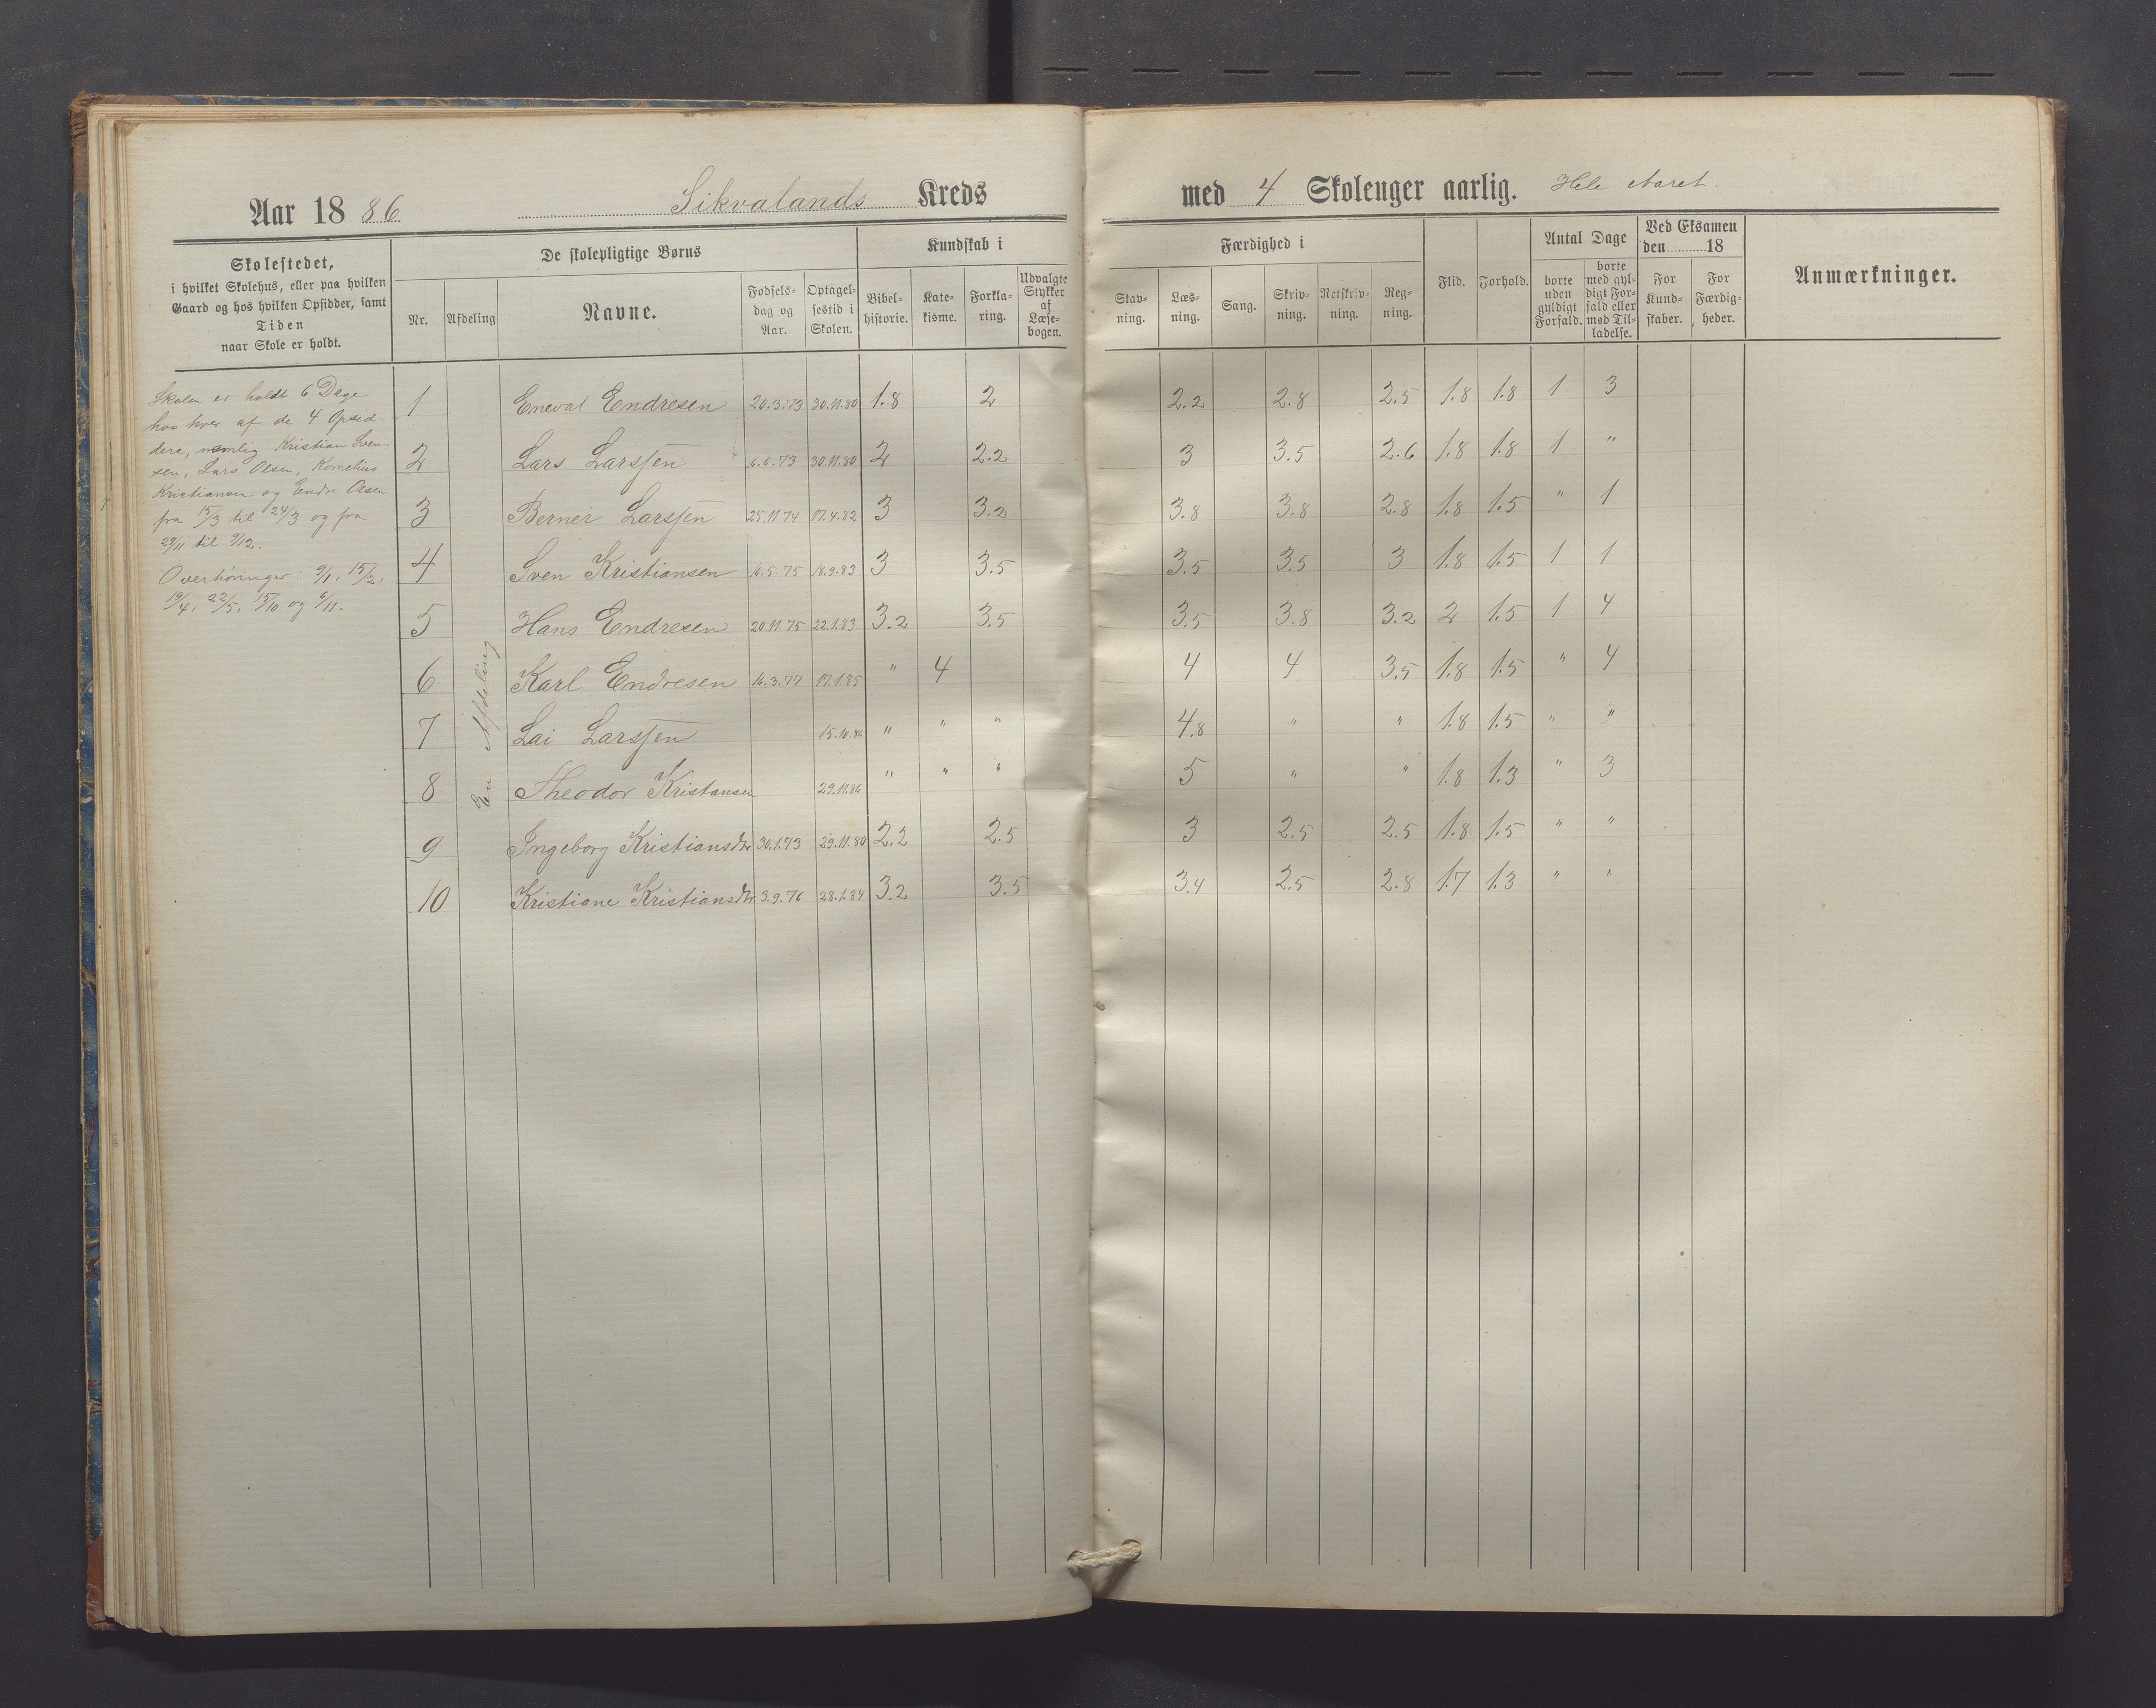 Aar 18 86. Sikvalands Kreds med 4 Skoleuger aarlig. Hele Aaret.
Skolestedet,
i hvilket Skolehus, eller paa hvilken
Gaard og hos hvilken Opsidder, samt
Tiden
naar Skole er holdt.
De skolepligtige Børns
Nr.
Afdeling
Navne.
Fødsels-
dag og
Aar.
Optagel-
sestid i
Skolen.
Kundskab i
Bibel-
historie.
Kate-
kisme.
Forkla-
ring.
Udvalgte
Stykker
af
Læse-
bogen.
Færdighed i
Stav-
ning.
Læs-
ning.
Sang.
Skriv-
ning.
Retskriv-
ning.
Reg-
ning.
Flid.
Forhold.
Antal Dage
borte
uden
gyldigt
Forfald.
borte
med gyl-
digt For-
fald eller
med Til-
ladelse.
Ved Eksamen
den 18
For
Kund-
skaber.
For
Færdig-
heder.
Anmærkninger.
Skolen er holdt 6 Dage
hos hver af de 4 Opsid-
dere, nemlig Kristian Sven-
sen, Lars Olsen, Kornelius
Kristiansen og Endre Olsen
fra 15/3 til 24/3 og fra
29/11 til 9/12.
Overhøringer: 9/1, 15/2,
19/4, 22/5, 15/10 og 6/11.
En Afdeling
1 Eneval Endresen 20.3.73 30.11.80 1.8 2 2.2 2.8 2.5 1.8 1.8 1 3
2 Lars Larssen 6.6.73 30.11.80 2 2.2 3 3.5 2.6 1.8 1.8 1 "
3 Berner Larssen 25.11.74 17.4.82 3 3.2 3.8 3.8 2.8 1.8 1.5 " 1
4 Sven Kristiansen 16.5.75 18.9.83 3 3.5 3.5 3.5 3 1.8 1.5 1 1
5 Hans Endresen 20.11.75 22.1.83 3.2 3.5 3.5 3.8 3.2 2 1.5 1 4
6 Karl Endresen 16.3.77 17.1.85 " 4 4 4 3.5 1.8 1.5 " 4
7 Lai Larssen 15.10.86 " " " 4.8 " " 1.8 1.5 " "
8 Theodor Kristansen 29.11.86 " " " 5 " " 1.8 1.3 " 3
9 Ingeborg Kristiansdtr 30.1.73 29.11.80 2.2 2.5 3 2.5 2.5 1.8 1.5 " "
10 Kristiane Kristiansdtr. 3.9.76 28.1.84 3.2 3.5 3.4 2.5 2.8 1.7 1.3 " "